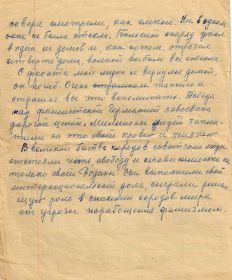 сквера смотрели, как слепые. Ни в одном
окне не было стекла. Большой снаряд упал
в один из домов и, как ножом, отрезал
четверть дома, волной выбило все стекла.
С фронта мой муж не вернулся домой,
он погиб. Очень тяжело и
страшно все это вспоминать. Победа
над фашистской Германией завоевана
дорогой ценой. Миллионы людей запла-
тили за это своей кровью и жизнью.
В великой битве народов советские люди
отстояли честь, свободу и независимость не
только своей Родины. Они выполнили свой
интернациональный долг, сыграли решаю-
щую роль в спасении народов мира
от угрозы порабощения фашизмом.